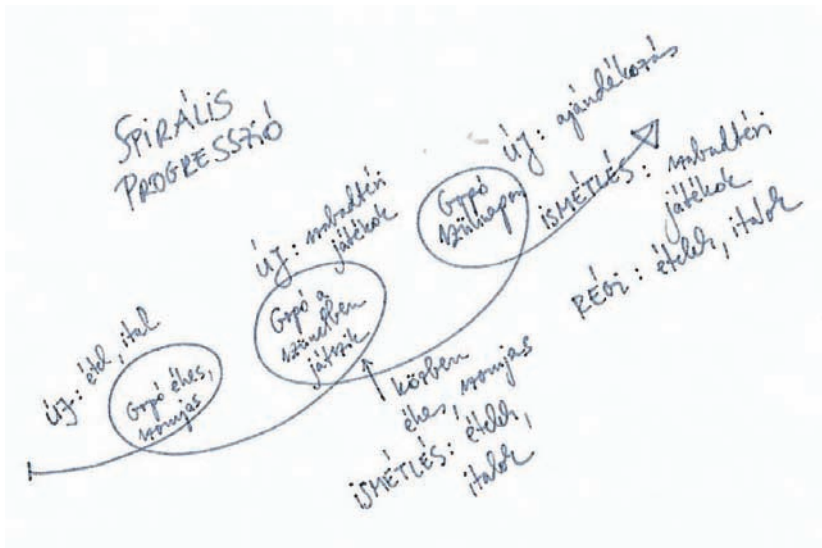 SPIRÁLIS
PROGRESSZIÓ
ÚJ: étel, ital
Gopó éhes,
szomjas
ÚJ: szabadtéri
játékok
Gopó a
szünetben
játszik
közben
éhes, szomjas
ISMÉTLÉS: ételek,
italok
ÚJ: ajándékozás
Gopó
szülinapja
ISMÉTLÉS: szabadtéri
játékok
RÉGI: ételek, italok